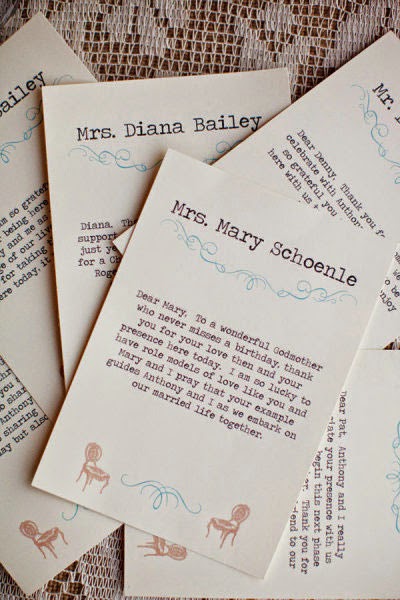 Bailey
m so grate
being here
and me as
of our liv
for taking
here today. it
sharing
Anthony
ay but also
Mrs. Diana Bailey
Diana, The
support
just y
for a Ch
Roge
Mr.
Dear Denny, Thank you f
celebrate with Anthony
so grateful you
here with us
Mrs. Mary Schoenle
Dear Mary, To a wonderful Godmother
who never misses a birthday, thank
you for your love then and your
presence here today. I am so lucky to
have role models of love like you and
Mary and I pray that your example
guides Anthony and I as we embark on
our married life together.
ear Pat, Anthony and I really
iate your presence with us
begin this next phase
Thank you for
end to our